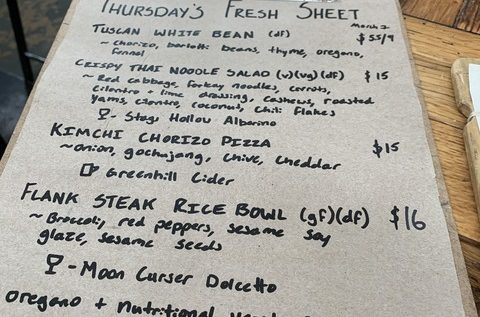 THURSDAY'S FRESH SHEET
March 2
TUSCAN WHITE BEAN (df) $5.5/9
~ chorizo, borlotti beans, thyme, oregano,
fennel
CRISPY THAI NOODLE SALAD (v)(vg)(df) $15
~ Red cabbage, crispy noodles, carrots,
cilantro + lime dressing, cashews, roasted
yams, cilantro, coconut, chili flakes
- Stags Hollow Albarino
KIMCHI CHORIZO PIZZA $15
~onion, gochujang, chive, cheddar
Greenhill Cider
FLANK STEAK RICE BOWL (gf)(df) $16
~ Broccoli, red peppers, sesame soy
glaze, sesame seeds
- Moon Curser Dolcetto
oregano + nutritional